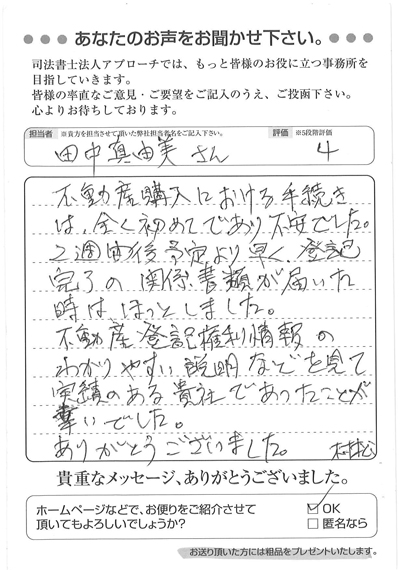 あなたのお声をお聞かせ下さい。
司法書士法人アプローチでは、もっと皆様のお役に立つ事務所を
目指していきます。
皆様の率直なご意見・ご要望をご記入のうえ、ご投函下さい。
心よりお待ちしております。
担当者 ※貴方を担当させて頂いた弊社担当者名をご記入下さい。 評価 ※5段階評価
田中真由美さん 4
不動産購入における手続き
は、全く初めてであり不安でした。
2週間後予定より早く、登記
完了の関係書類が届いた
時はほっとしました。
不動産登記権利情報の
わかりやすい説明などを見て
実績のある貴社であったことが
幸いでした。
ありがとうございました。
貴重なメッセージ、ありがとうございました。
ホームページなどで、お便りをご紹介させて
頂いてもよろしいでしょうか?
OK
匿名なら
お送り頂いた方には粗品をプレゼントいたします。